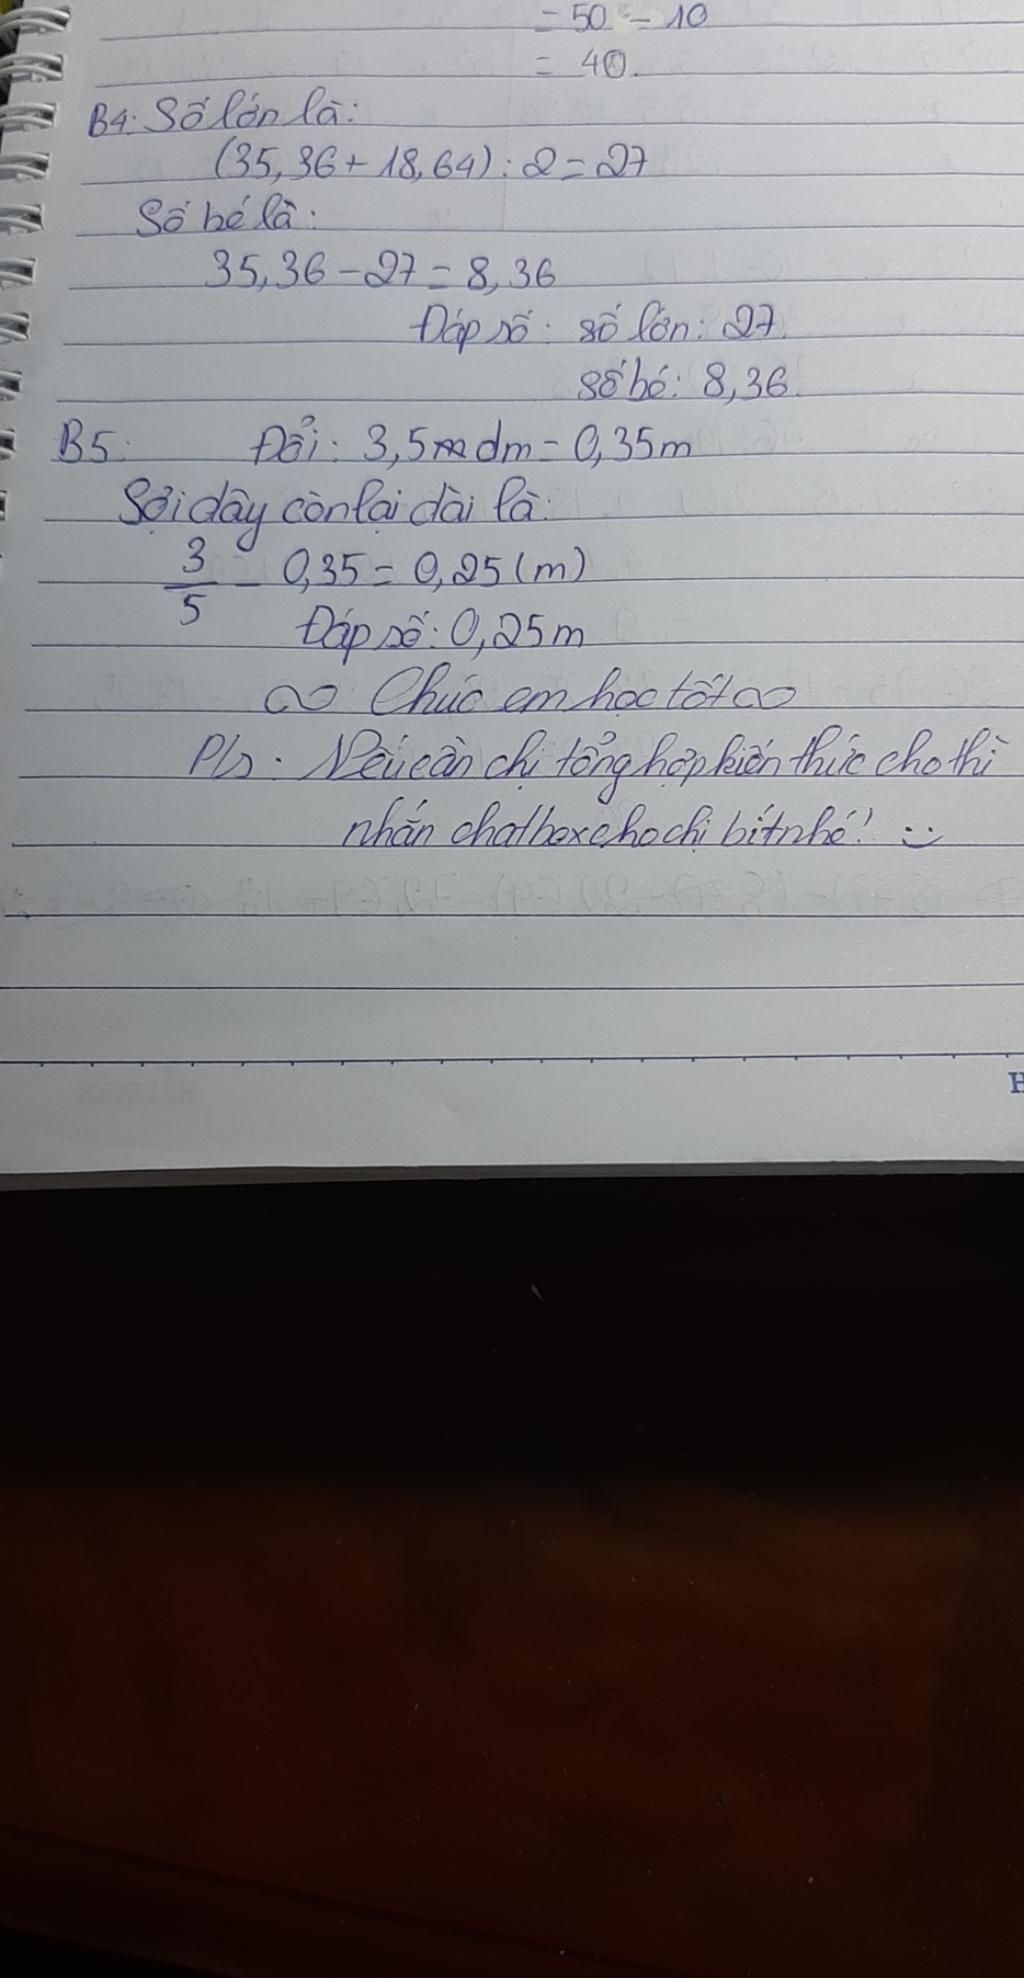 = 50 - 10
= 40.
B4: Số lớn là:
(35,36 + 18,64) : 2 = 27
Số bé là:
35,36 - 27 = 8,36
Đáp số: số lớn: 27.
số bé: 8,36.
B5: Đổi: 3,5 dm = 0,35m
Sợi dây còn lại dài là:
3/5 - 0,35 = 0,25 (m)
Đáp số: 0,25m
∞ Chúc em học tốt ∞
P/s: Nếu cần chị tổng hợp kiến thức cho thì
nhắn chatbox cho chị bít nhé! :)
H